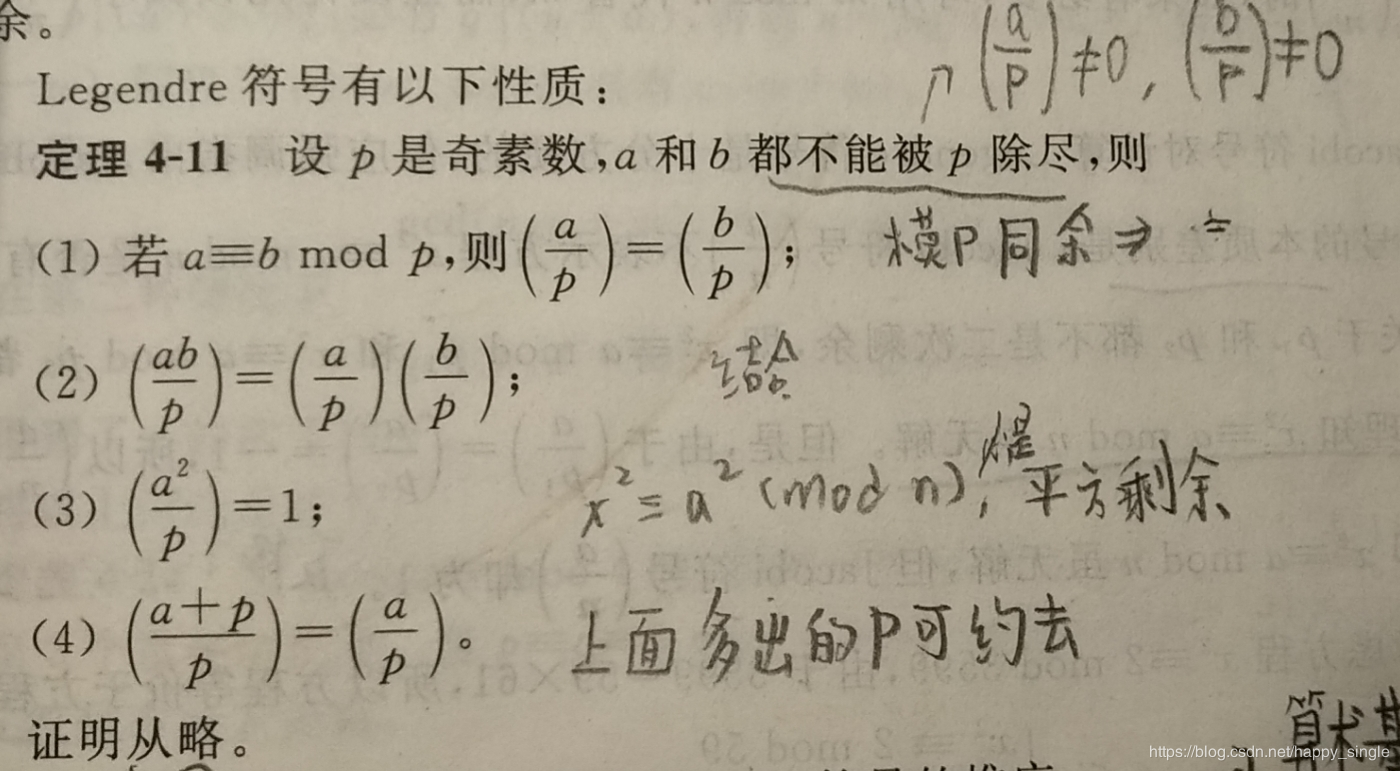 余。
(a/p)≠0, (b/p)≠0
Legendre 符号有以下性质：
定理 4-11 设 p 是奇素数,a 和 b 都不能被 p 除尽,则
(1) 若 a≡b mod p,则(a/p)=(b/p); 模P同余⇒
(2) (ab/p)=(a/p)(b/p); 结合
(3) (a²/p)=1; x²≡a² (mod n), 是平方剩余
(4) (a+p/p)=(a/p)。 上面多出的P可约去
证明从略。
https://blog.csdn.net/happy_single